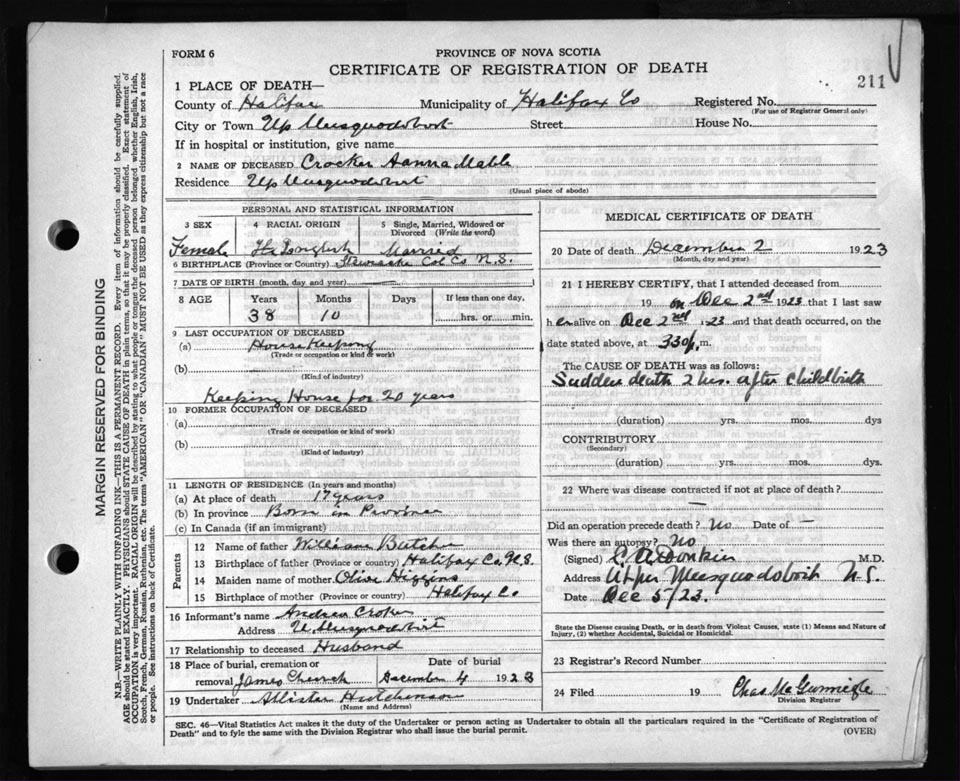 FORM 6
PROVINCE OF NOVA SCOTIA
CERTIFICATE OF REGISTRATION OF DEATH
211
1 PLACE OF DEATH—
County of Halifax Municipality of Halifax Co Registered No.
(For use of Registrar General only)
City or Town Up Musquodoboit Street House No.
If in hospital or institution, give name
2 NAME OF DECEASED Crocker Hanna Mable
Residence Up Musquodoboit
(Usual place of abode)
PERSONAL AND STATISTICAL INFORMATION
3 SEX 4 RACIAL ORIGIN 5 Single, Married, Widowed or Divorced (Write the word)
Female English Married
6 BIRTHPLACE (Province or Country) Col Co N.S.
7 DATE OF BIRTH (month, day and year)
8 AGE Years Months Days If less than one day,
38 10 hrs. or min.
9 LAST OCCUPATION OF DECEASED
(a) House Keeping
(Trade or occupation or kind of work)
(b)
(Kind of industry)
Keeping House for 20 years
10 FORMER OCCUPATION OF DECEASED
(a)
(Trade or occupation or kind of work)
(b)
(Kind of industry)
11 LENGTH OF RESIDENCE (In years and months)
(a) At place of death 17 years
(b) In province Born in Province
(c) In Canada (if an immigrant)
Parents
12 Name of father William Butcher
13 Birthplace of father (Province or country) Halifax Co. N.S.
14 Maiden name of mother Olive Higgins
15 Birthplace of mother (Province or country) Halifax Co
16 Informant's name Andrew
Address U. Musquodoboit
17 Relationship to deceased Husband
18 Place of burial, cremation or removal James Church
Date of burial December 4 1923
19 Undertaker Allister Hutchinson
(Name and Address)
MEDICAL CERTIFICATE OF DEATH
20 Date of death December 2 1923
(Month, day and year)
21 I HEREBY CERTIFY, that I attended deceased from
19 on Dec 2nd 1923 that I last saw
h er alive on Dec 2nd 23 and that death occurred, on the
date stated above, at 330 p. m.
The CAUSE OF DEATH was as follows:
Sudden death 2 hrs. after childbirth
(duration) yrs. mos. dys
CONTRIBUTORY
(Secondary)
(duration) yrs. mos. dys.
22 Where was disease contracted if not at place of death?
—
Did an operation precede death? no Date of —
Was there an autopsy? no
(Signed) M.D.
Address Upper Musquodoboit N.S.
Date Dec 5/23.
State the Disease causing Death, or in death from Violent Causes, state (1) Means and Nature of
Injury, (2) whether Accidental, Suicidal or Homicidal.
23 Registrar's Record Number
24 Filed 19 Chas
Division Registrar
SEC. 46—Vital Statistics Act makes it the duty of the Undertaker or person acting as Undertaker to obtain all the particulars required in the "Certificate of Registration of
Death" and to fyle the same with the Division Registrar who shall issue the burial permit.
(OVER)
MARGIN RESERVED FOR BINDING
N.B.—WRITE PLAINLY WITH UNFADING INK—THIS IS A PERMANENT RECORD. Every item of information should be carefully supplied.
AGE should be stated EXACTLY. PHYSICIANS should STATE CAUSE OF DEATH in plain terms, so that it may be properly classified. Exact statement of
OCCUPATION is very important. RACIAL ORIGIN will be described by stating to what people or tongue the deceased person belonged whether English, Irish,
Scotch, French, German, Russian, Ruthenian, etc. The terms "AMERICAN" OR "CANADIAN" MUST NOT BE USED as they express citizenship but not a race
or people. See instructions on back of Certificate.